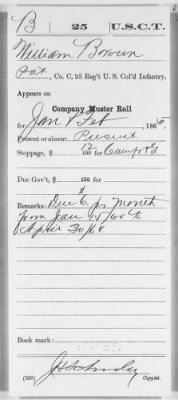 B 25 U.S.C.T.
William Brown
Pvt, Co. C, 25 Reg't U. S. Col'd Infantry.
Appears on
Company Muster Roll
for Jan & Feb, 186
Present or absent Present
Stoppage, $ 12 100 for Camp &
Due Gov't, $ 100 for
Remarks: Due 6 $ pr Month
from Jan 15/65 to
April 30/65
Book mark:
(358) Copyist.